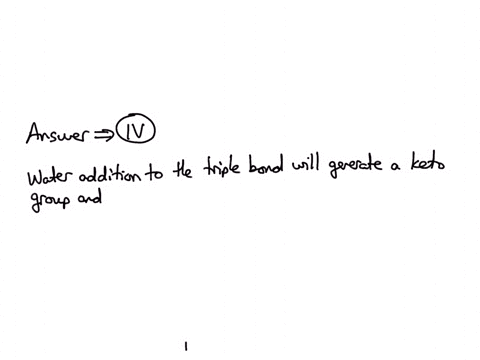 Answer ⇒ IV
Water addition to the triple bond will generate a keto
group and